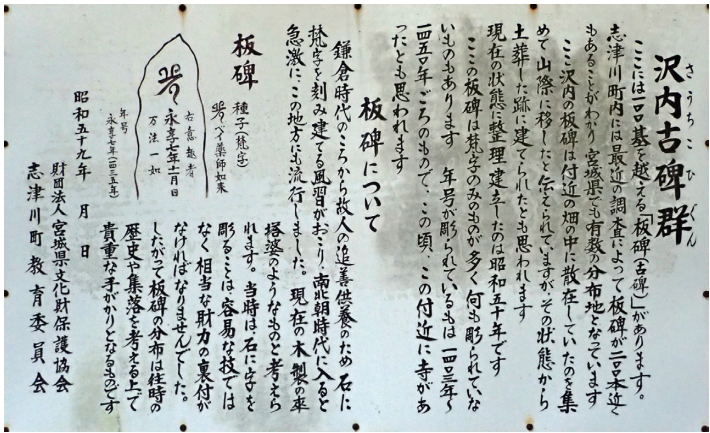 さうちこひぐん
沢内古碑群
ここには一一〇基を越える「板碑(古碑)」があります。
志津川町内には最近の調査によって板碑が二〇〇本近く
もあることがわかり 宮城県でも有数の分布地となっています
ここ沢内の板碑は付近の畑の中に散在していたのを集
めて山際に移したと伝えられていますが、その状態から
土葬した跡に建てられたとも思われます
現在の状態に整理 建立したのは昭和五十年です
ここの板碑は梵字のみのものが多く何も彫られていな
いものもあります 年号が彫られているものは一四〇三年〜
一四五〇年ごろのもので、この頃、この付近に寺があ
ったとも思われます
板碑について
鎌倉時代のころから故人の追善供養のため石に
梵字を刻み建てる風習がおこり、南北朝時代に入ると
急激に、この地方にも流行しました。現在の木製の卒
塔婆のようなものと考えら
れます。当時は石に字を
彫ることは、容易な技では
なく相当な財力の裏付が
なければなりませんでした。
したがって板碑の分布は往時の
歴史や集落を考える上で
貴重な手がかりとなるものです
板碑
種子(梵字)
バイ薬師如来
右意趣者
永享七年十一月日
万法一如
年号
永享七年(一四三五年)
昭和五十九年 月 日
財団法人宮城県文化財保護協会
志津川町教育委員会